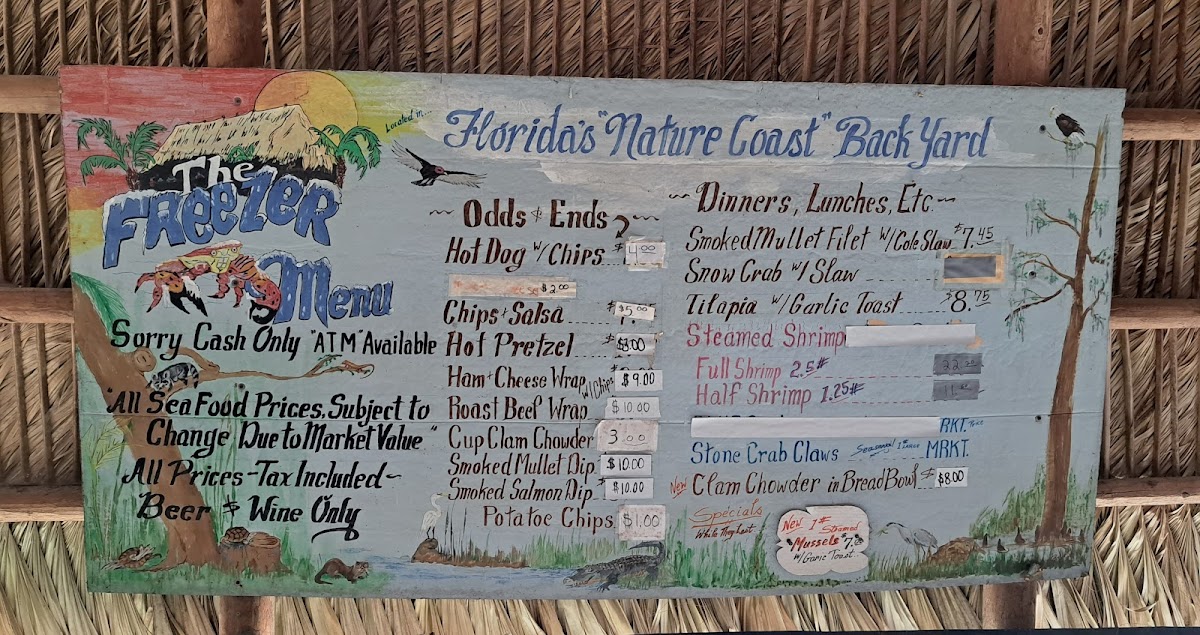 The
FReezeR
Menu
Located in...
Florida's "Nature Coast" Back Yard
Sorry Cash Only "ATM" Available
"All Sea Food Prices, Subject to
Change Due to Market Value"
All Prices - Tax Included ~
Beer & Wine Only
~~ Odds & Ends ~~
Hot Dog w/ Chips $4.00
$2.00
Chips & Salsa $5.00
Hot Pretzel $3.00
Ham & Cheese Wrap w/ Chips $9.00
Roast Beef Wrap $10.00
Cup Clam Chowder 3.00
Smoked Mullet Dip $10.00
Smoked Salmon Dip $10.00
Potatoe Chips $1.00
~ Dinners, Lunches, Etc. ~
Smoked Mullet Filet w/ Cole Slaw $7.45
Snow Crab w/ Slaw
Tilapia w/ Garlic Toast $8.75
Steamed Shrimp
Full Shrimp 2.5#
Half Shrimp 1.25#
RKT.
Stone Crab Claws MRKT.
New Clam Chowder in Bread Bowl $8.00
Specials
While They Last
New 1# Steamed
Mussels $7.00
w/ Garic Toast